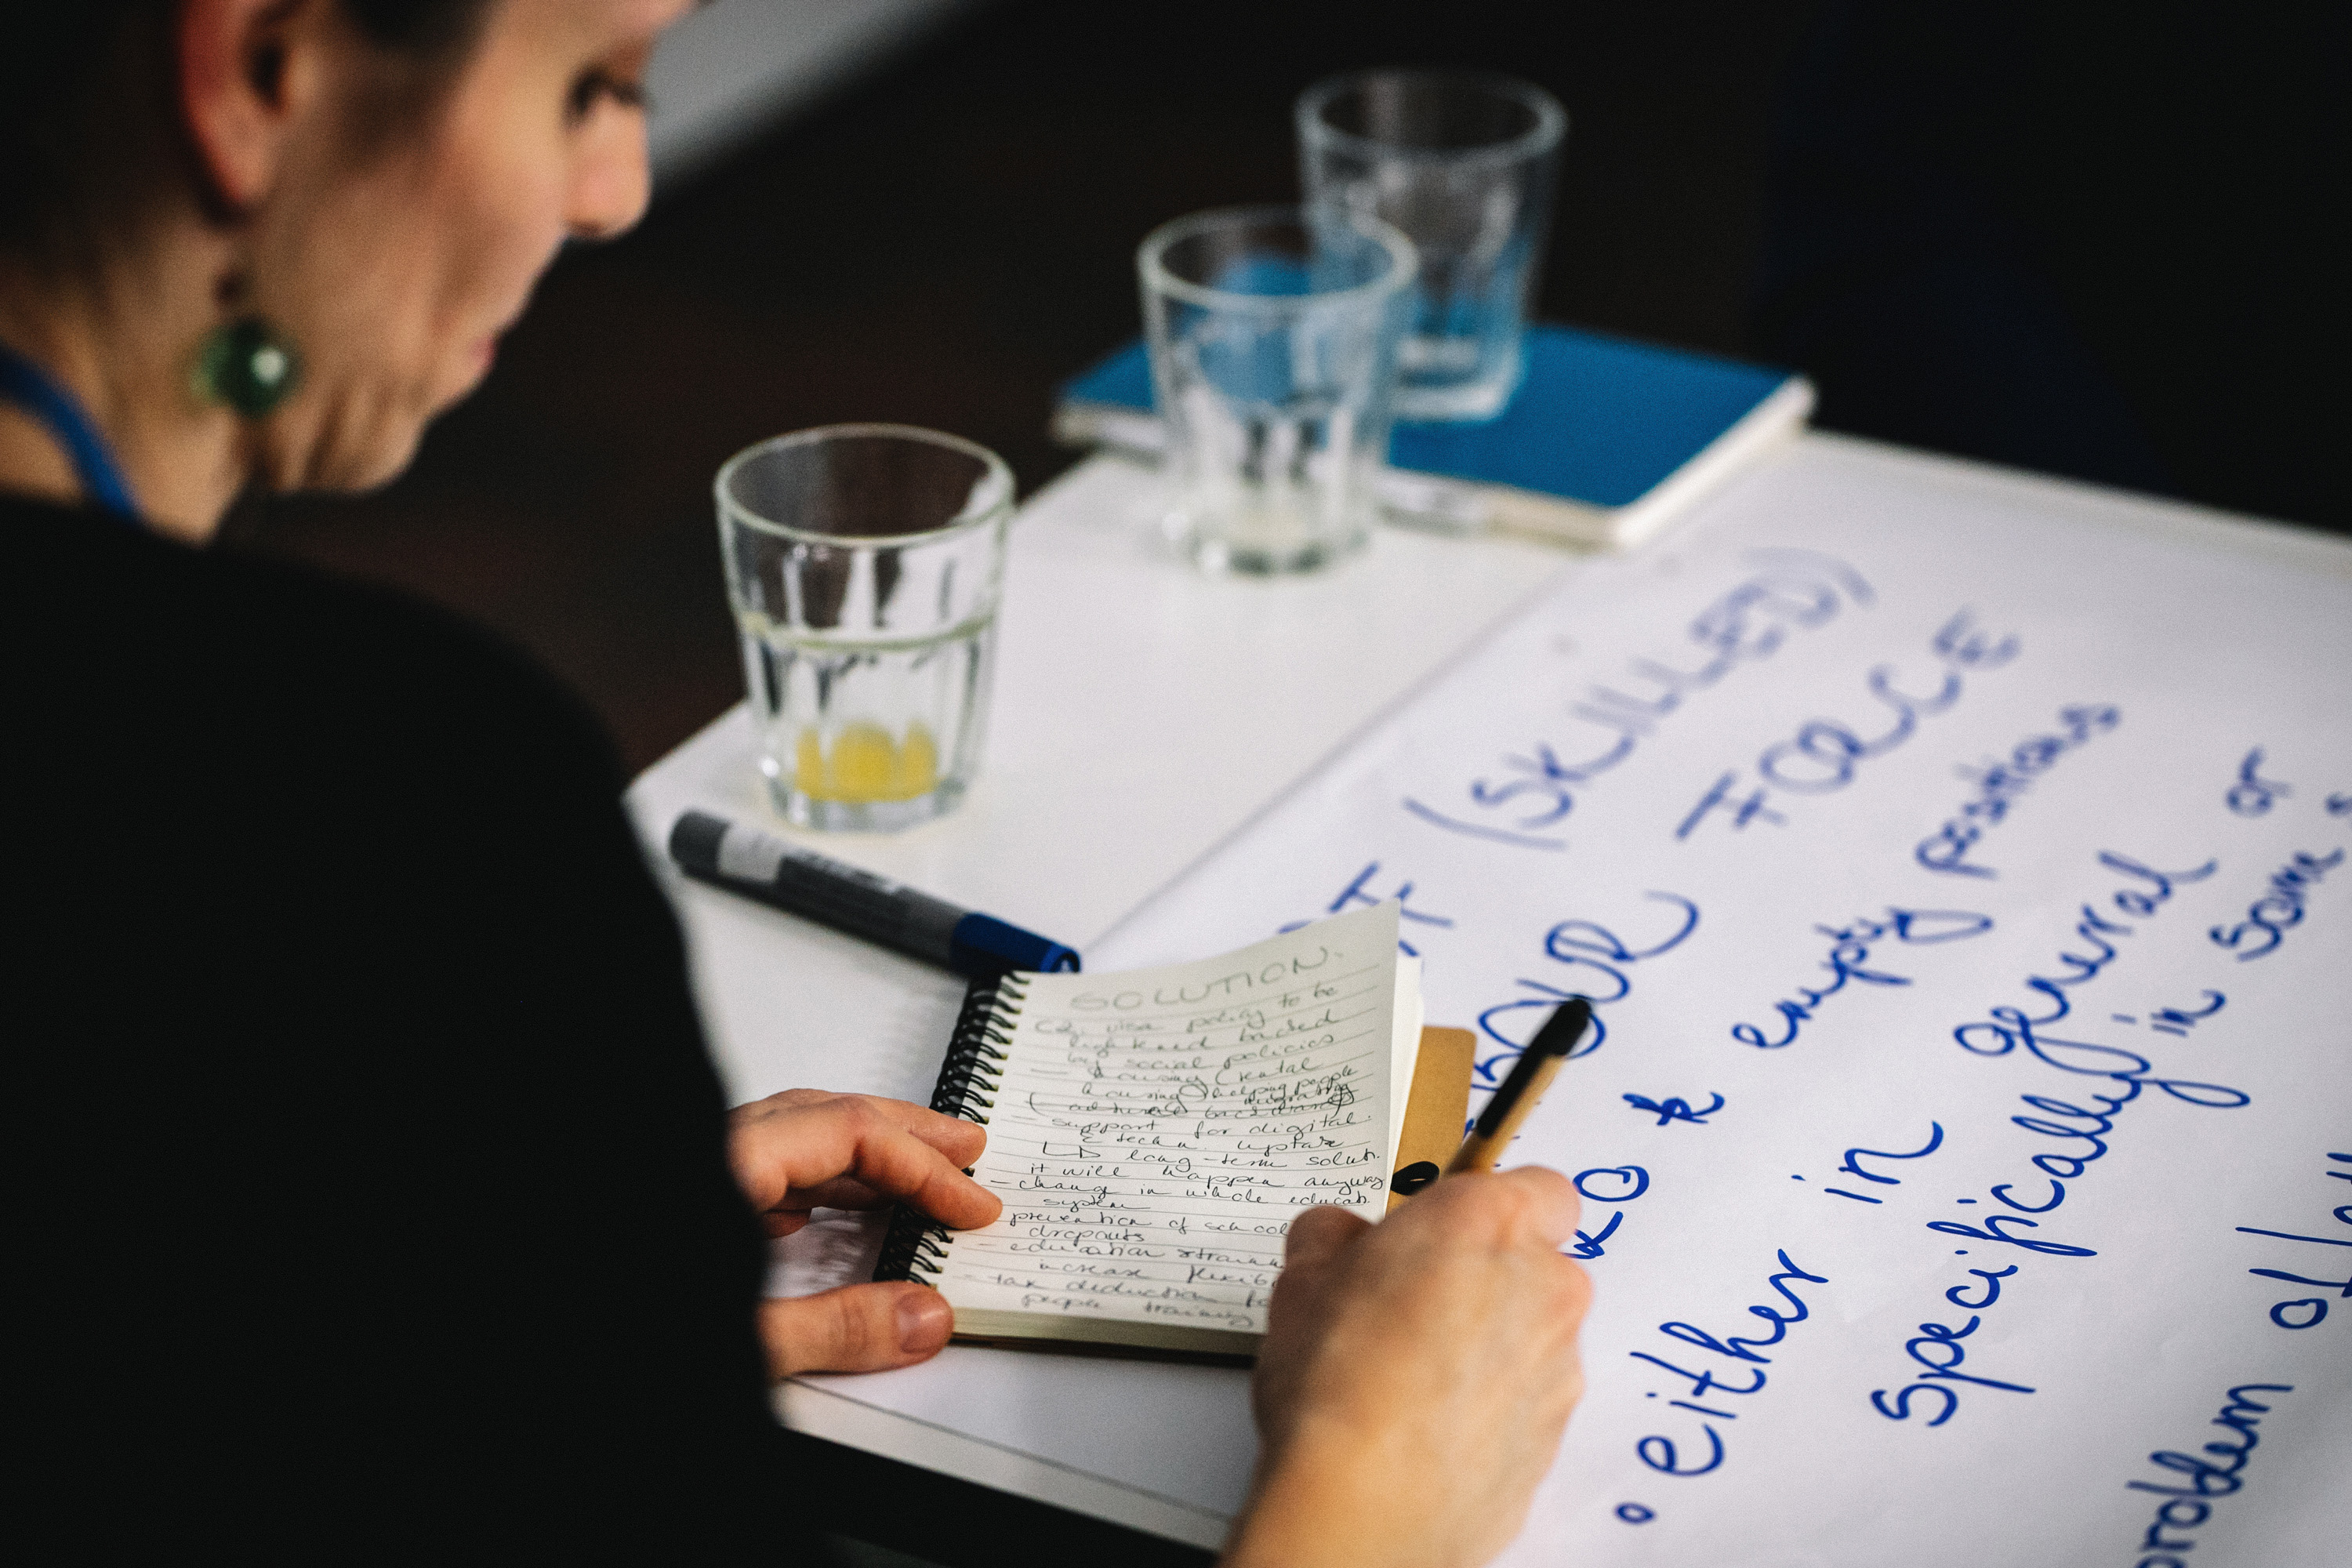 SOLUTION.
visa policy to be
based
by social policies
- housing (rental
housing) helping people
support for digital
& techn. uptake
long-term solut.
it will happen anyway
- change in whole educat.
system
prevention of school
dropouts
- education & training
increase flexib
- tax deduction fo
people training
(SKILLED)
FORCE
empty positions
• either in general or
specifically in some
problem of